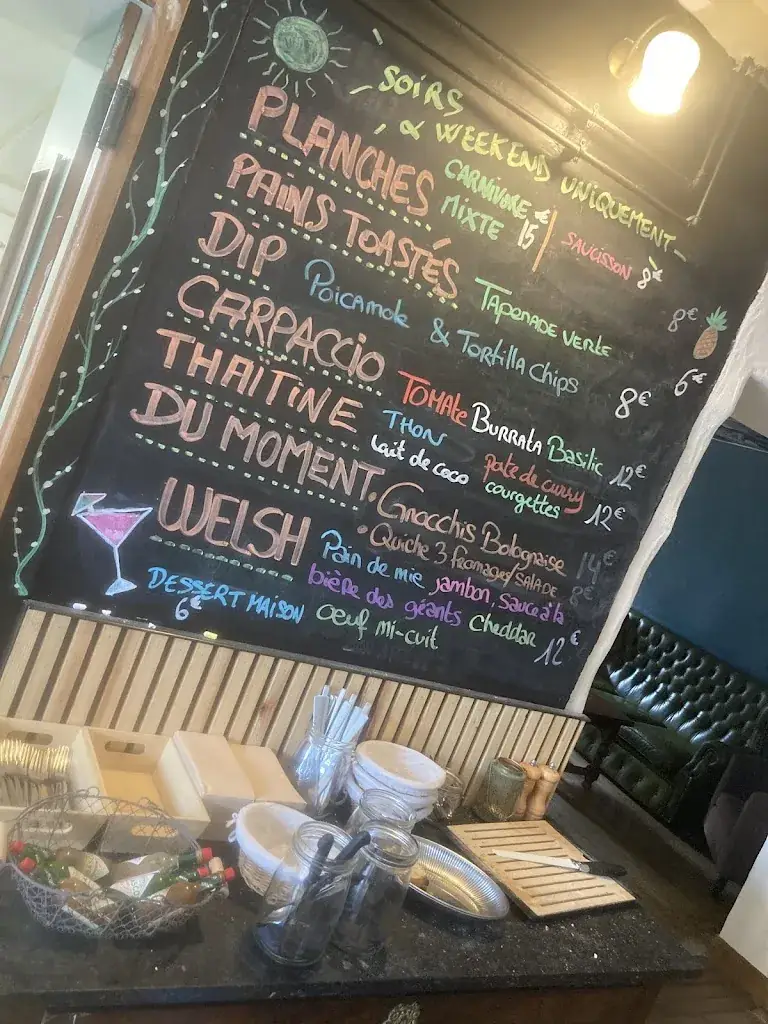 SOIRS
& WEEKEND UNIQUEMENT
PLANCHES CARNIVORE € | SAUCISSON 8€
MIXTE 15
PAINS TOASTÉS TAPENADE VERTE 8€
DIP Poicamole & Tortilla chips 6€
CARPACCIO TOMATE BURRATA Basilic 8€
THAÏTINE THON pate de curry 12€
lait de coco courgettes 12€
DU MOMENT • Gnocchis Bolognaise 14€
• Quiche 3 fromages/SALADE 8€
WELSH Pain de mie, jambon, sauce à la
bière des géants Cheddar 12€
oeuf mi-cuit
DESSERT MAISON
6€